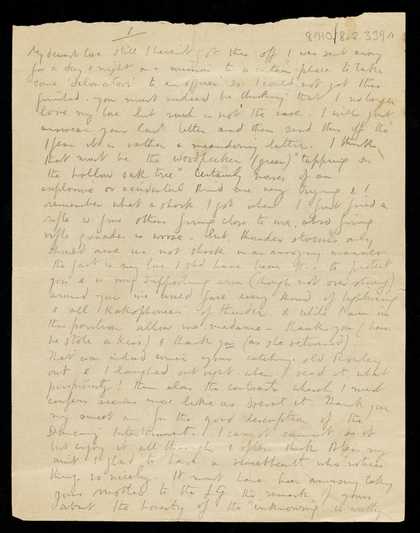 1
8910/8-2 339
My dearest love still I haven't got this off I was sent away
for a day & night on a mission to a certain place to take
some "detonators" to an officer so I could not get this
finished. you must indeed be thinking that I no longer
love my love but such is not the case. I will just
answer your last letter and then send this off tho
I fear it is rather a meandering letter. I think
that must be the woodpecker (green) "tapping on
the hollow oak tree" Certainly noises of an
explosive or accidental kind are very trying & I
remember what a shock I got when I first fired a
rifle w five others firing close to me, also firing
rifle grenades is worse. but thunder storms only
thrill and do not shock in an annoying manner
the fact is my love I shd have been there to protect
you & w my supporting arm (though not over strong)
around you we could face every kind of lightning
& all kakophonies of thunder & while I am in
this position allow me madame - thank you (here
he stole a kiss) & thank you (as she returned)
That was indeed wise your catching old
out & I laughed outright when I read it what
perspicuity! then alas the contrasts which I must
confess seems more like as
my sweet one for the good description of the
Dancing Entertainment. I cannot cannot do it
but enjoy it all through & often think when my
mind is glad to have a sweetheart who writes
things so nicely. It must have been amusing taking
your mother to the L.G the remark of yours
about the beauty of the "unknowing" is witty